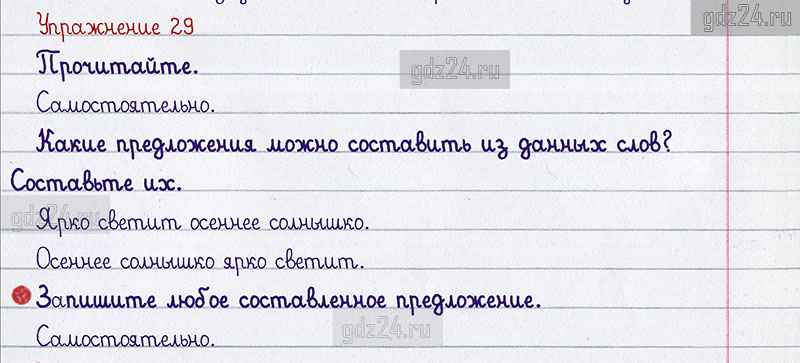 Упражнение 29
gdz24.ru
Прочитайте.
gdz24.ru
Самостоятельно.
Какие предложения можно составить из данных слов?
Составьте их.
gdz24.ru
Ярко светит осеннее солнышко.
Осеннее солнышко ярко светит.
Запишите любое составленное предложение.
gdz24.ru
Самостоятельно.